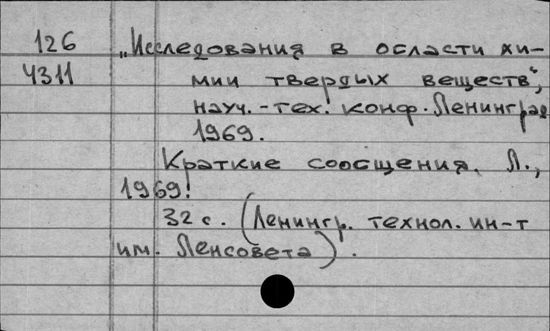 126 „Исследования в области хи-
4311 мии твердых веществ",
науч.-тех. конф. Ленинград
1969.
Краткие сообщения. Л.,
1969.
32 с. (Ленингр. технол. ин-т
им. Ленсовета).